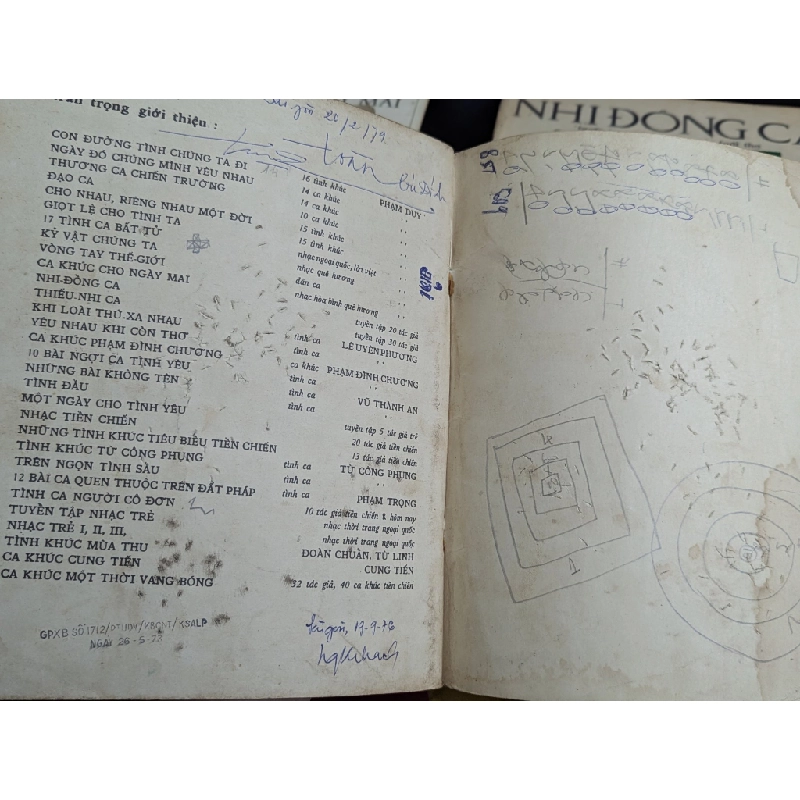 NHI ĐỒNG CA
trân trọng giới thiệu :
Sài gòn 20/2/79
CON ĐƯỜNG TÌNH CHÚNG TA ĐI 16 tình khúc PHẠM DUY
NGÀY ĐÓ CHÚNG MÌNH YÊU NHAU 14 ca khúc ''
THƯƠNG CA CHIẾN TRƯỜNG 14 ca khúc ''
ĐẠO CA 10 ca khúc ''
CHO NHAU, RIÊNG NHAU MỘT ĐỜI 15 tình khúc ''
GIỌT LỆ CHO TÌNH TA 15 tình khúc ''
17 TÌNH CA BẤT TỬ nhạc ngoại quốc, lời việt ''
KỶ VẬT CHÚNG TA nhạc quê hương ''
VÒNG TAY THẾ-GIỚI dân ca ''
CA KHÚC CHO NGÀY MAI nhạc hòa bình quê hương ''
NHI-ĐỒNG CA tuyển tập 30 tác giả
THIẾU-NHI CA tuyển tập 30 tác giả
KHI LOÀI THÚ XA NHAU tình ca LÊ UYÊN PHƯƠNG
YÊU NHAU KHI CÒN THƠ tình ca ''
CA KHÚC PHẠM ĐÌNH CHƯƠNG ca khúc PHẠM ĐÌNH CHƯƠNG
10 BÀI NGỢI CA TÌNH YÊU tình ca ''
NHỮNG BÀI KHÔNG TÊN tình ca VŨ THÀNH AN
TÌNH ĐẦU tình ca ''
MỘT NGÀY CHO TÌNH YÊU tuyển tập 5 tác giả trẻ
NHẠC TIỀN CHIẾN 20 tác giả tiền chiến
NHỮNG TÌNH KHÚC TIÊU BIỂU TIỀN CHIẾN 13 tác giả tiền chiến
TÌNH KHÚC TỪ CÔNG PHỤNG tình ca TỪ CÔNG PHỤNG
TRÊN NGỌN TÌNH SẦU tình ca ''
12 BÀI CA QUEN THUỘC TRÊN ĐẤT PHÁP tình ca PHẠM TRỌNG
TÌNH CA NGƯỜI CÔ ĐƠN 16 tác giả tiền chiến & hôm nay
TUYỂN TẬP NHẠC TRẺ nhạc thời trang ngoại quốc
NHẠC TRẺ I, II, III, nhạc thời trang ngoại quốc
TÌNH KHÚC MÙA THU ĐOÀN CHUẨN, TỪ LINH
CA KHÚC CUNG TIẾN CUNG TIẾN
CA KHÚC MỘT THỜI VANG BÓNG 32 tác giả, 40 ca khúc tiền chiến
GPXB SỐ 1712/
NGÀY 26-5-73
Sài gòn, 13-9-73